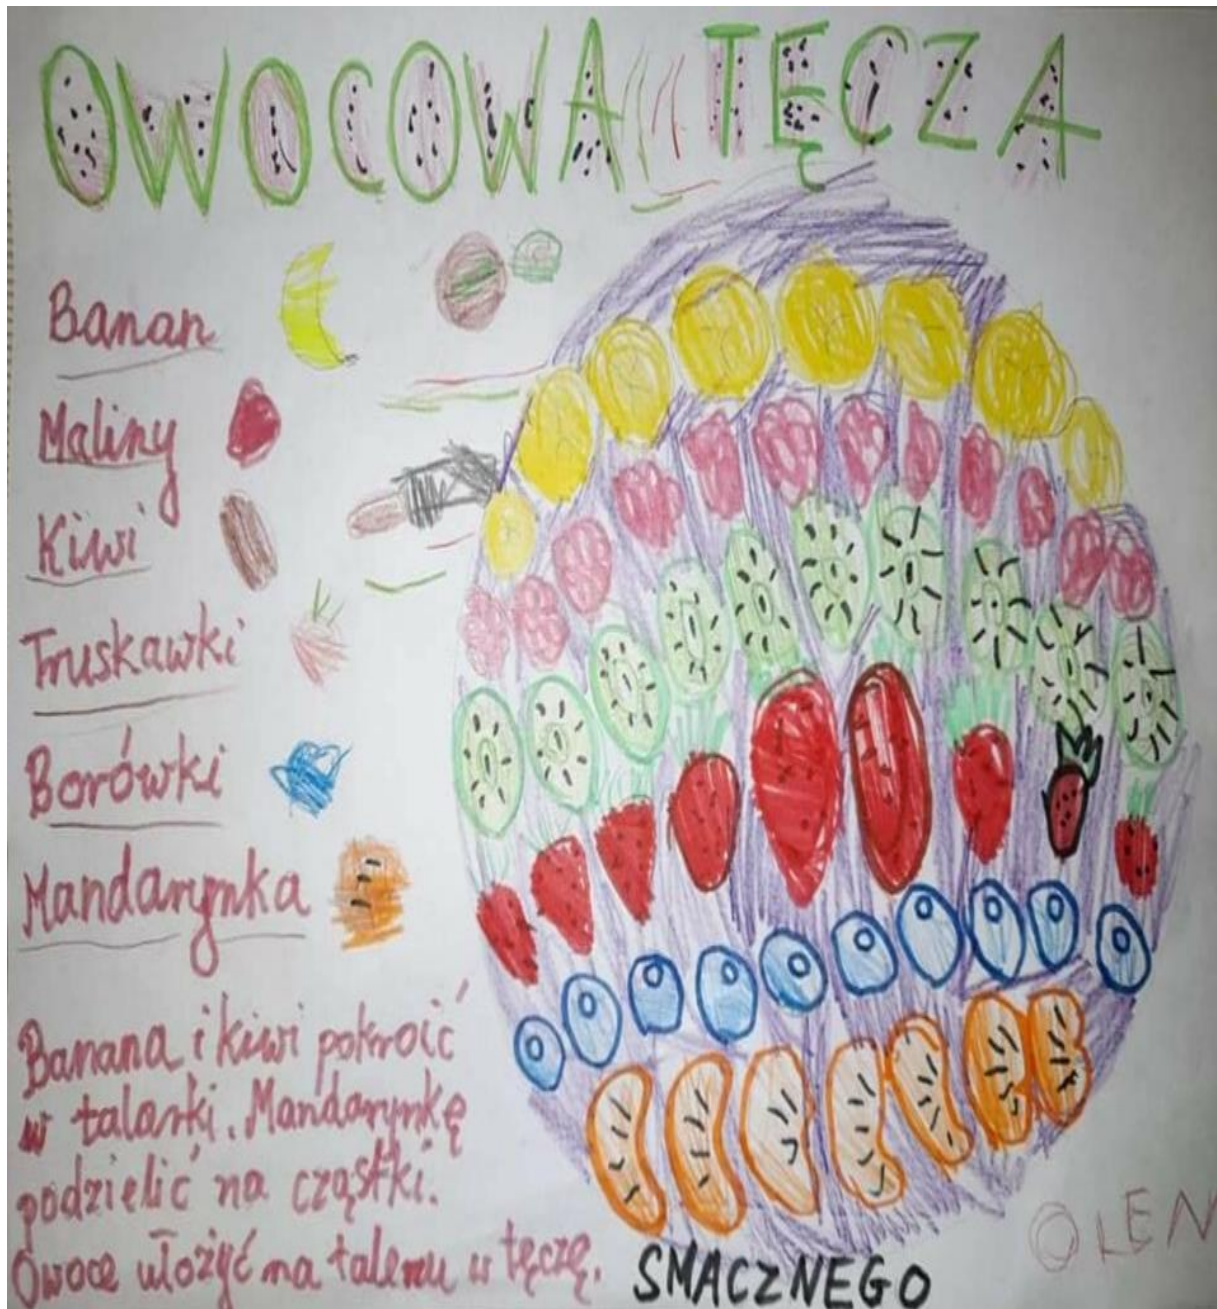 OWOCOWA TĘCZA
Banan
Maliny
Kiwi
Truskawki
Borówki
Mandarynka
Banana i kiwi pokroić
w talarki. Mandarynkę
podzielić na cząstki.
Owoce ułożyć na talerzu w tęczę.
SMACZNEGO
OLEN